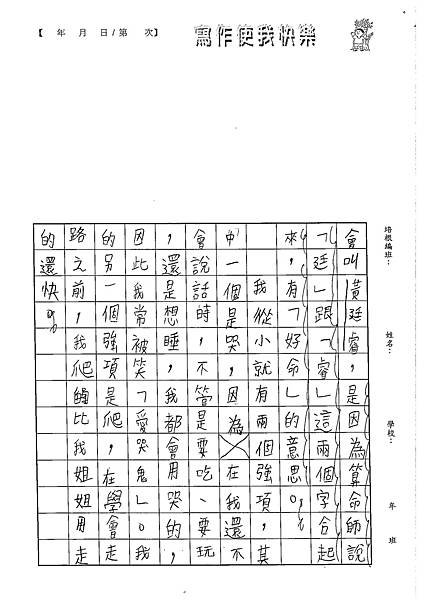 【　年　月　日/第　次】
寫作使我快樂
培根編班：
姓名：
學校：
年　班
會叫黃廷睿，是因為算命師說
「廷」跟「睿」這兩個字合起
來，有「好命」的意思。
我從小就有兩個強項，其
中一個是哭，因為在我還不
會說話時，不管是要吃、要玩
，還是想睡，我都會用哭的，
因此我常被笑「愛哭鬼」。我
的另一個強項是爬，在學會走
路之前，我爬比我姐姐用走
的還快。